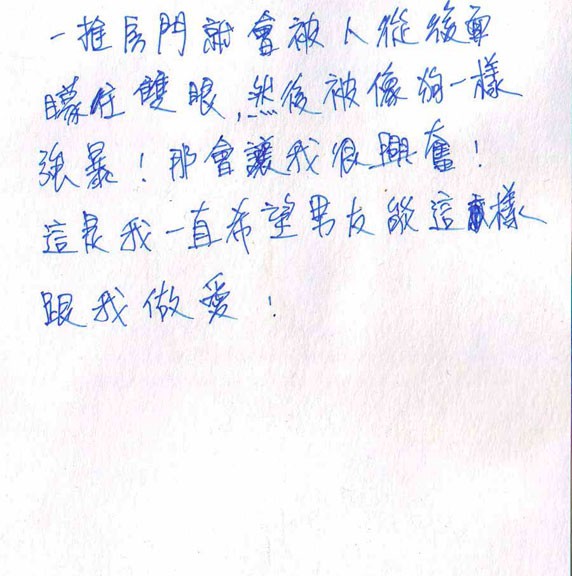 一推房門就會被人從後面
矇住雙眼,然後被像狗一樣
強暴!那會讓我很興奮!
這是我一直希望男友能這樣
跟我做愛!